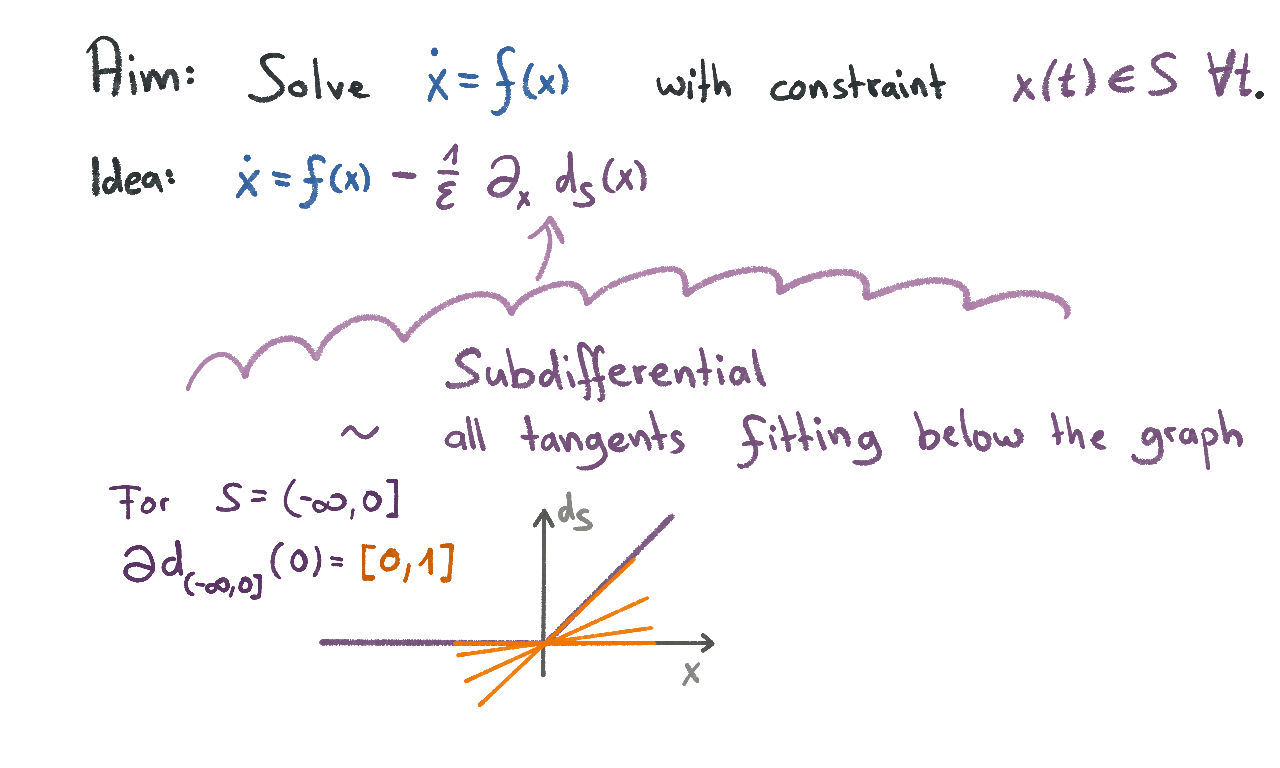 Aim: Solve ẋ = f(x) with constraint x(t) ∈ S ∀t.
Idea: ẋ = f(x) − 1/ε ∂ₓ d_S(x)
Subdifferential
~ all tangents fitting below the graph
For S = (-∞,0]
∂d_(-∞,0] (0) = [0,1]
d_S
x